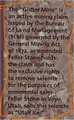 The "Glitter Mine" is
an active mining claim
issued by the Bureau
of Land Management
(BLM) governed by the
General Mining Act
of 1872, as amended.
Feller Stone holds
the claim and has
the exclusive rights
to remove selenite
for the purposes of
commercial sales.
Feller Stone in Vejo,
Utah, sells this selenite
as "Utah Ice"